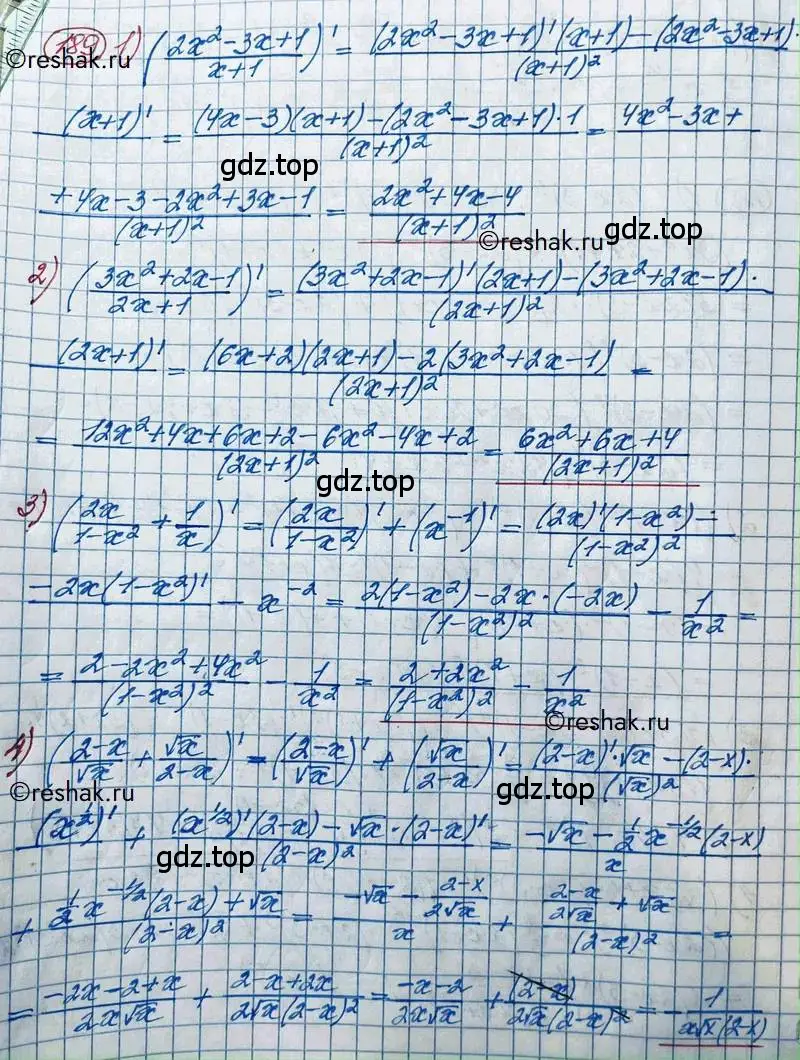 189 1) ((2x² - 3x + 1)/(x+1))' = ((2x² - 3x + 1)'(x+1) - (2x² - 3x + 1)·)/(x+1)²
©reshak.ru
(x+1)' = ((4x-3)(x+1) - (2x² - 3x + 1)·1)/(x+1)² = 4x² - 3x +
gdz.top
(+ 4x - 3 - 2x² + 3x - 1)/(x+1)² = (2x² + 4x - 4)/(x+1)²
gdz.top
©reshak.ru
2) ((3x² + 2x - 1)/(2x+1))' = ((3x² + 2x - 1)'(2x+1) - (3x² + 2x - 1)·)/(2x+1)²
(2x+1)' = ((6x+2)(2x+1) - 2(3x² + 2x - 1))/(2x+1)² =
= (12x² + 4x + 6x + 2 - 6x² - 4x + 2)/(2x+1)² = (6x² + 6x + 4)/(2x+1)²
gdz.top
3) (2x/(1-x²) + 1/x)' = (2x/(1-x²))' + (x⁻¹)' = ((2x)'(1-x²) -)/(1-x²)²
- 2x(1-x²)' - x⁻² = (2(1-x²) - 2x·(-2x))/(1-x²)² - 1/x² =
= (2 - 2x² + 4x²)/(1-x²)² - 1/x² = (2 + 2x²)/(1-x²)² - 1/x²
©reshak.ru
4) ((2-x)/√x + √x/(2-x))' = ((2-x)/√x)' + (√x/(2-x))' = ((2-x)'·√x - (2-x)·)/(√x)²
©reshak.ru
gdz.top
(x^½)' + ((x^1/2)'(2-x) - √x·(2-x)')/(2-x)² = (-√x - ½x^-1/2(2-x))/x
+ (½x^-1/2(2-x) + √x)/(2-x)² = (-√x - (2-x)/(2√x))/x + ((2-x)/(2√x) + √x)/(2-x)² =
= (-2x - 2 + x)/(2x√x) + (2 - x + 2x)/(2√x(2-x)²) = (-x-2)/(2x√x) + (2-x)/(2√x(2-x)²) = - 1/(x√x(2-x))